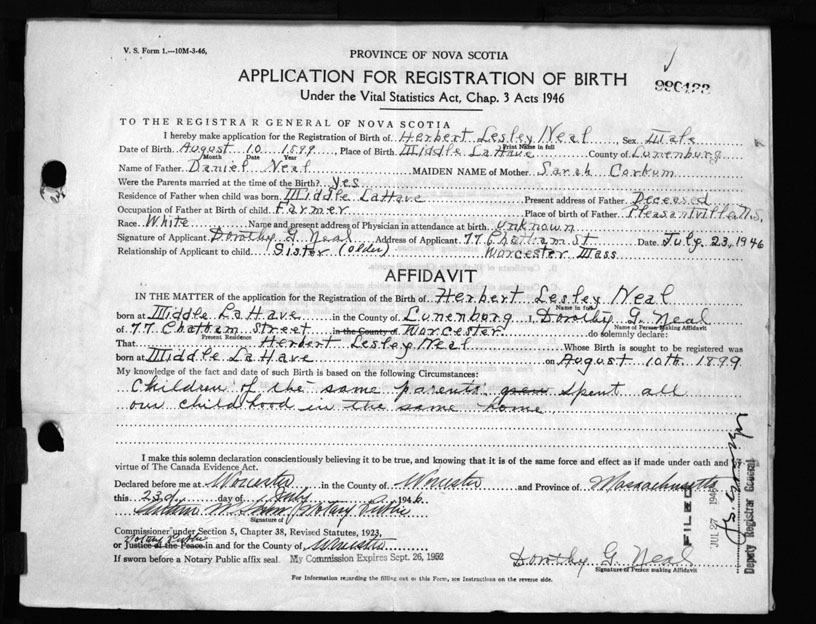 V. S. Form 1.—10M-3-46.
PROVINCE OF NOVA SCOTIA
APPLICATION FOR REGISTRATION OF BIRTH
Under the Vital Statistics Act, Chap. 3 Acts 1946
TO THE REGISTRAR GENERAL OF NOVA SCOTIA
I hereby make application for the Registration of Birth of Herbert Lesley Neal Sex Male
Print Name in full
Date of Birth August 10 1899 Place of Birth Middle LaHave County of Lunenburg
Month Date Year
Name of Father Daniel Neal MAIDEN NAME of Mother Sarah Corkum
Were the Parents married at the time of the Birth? yes
Residence of Father when child was born Middle LaHave Present address of Father Deceased
Occupation of Father at Birth of child Farmer Place of birth of Father Pleasantville N.S.
Race White Name and present address of Physician in attendance at birth unknown
Signature of Applicant Dorothy G. Neal Address of Applicant 77 Chatham St Date July 23, 1946
Relationship of Applicant to child Sister (older) Worcester Mass
AFFIDAVIT
IN THE MATTER of the application for the Registration of the Birth of Herbert Lesley Neal
Name in full
born at Middle LaHave in the County of Lunenburg I, Dorothy G. Neal
Name of Person Making Affidavit
of 77 Chatham Street in the County of Worcester do solemnly declare:
Present Residence
That Herbert Lesley Neal Whose Birth is sought to be registered was
born at Middle LaHave on August 10th 1899
My knowledge of the fact and date of such Birth is based on the following Circumstances:
Children of the same parents, grew spent all
our childhood in the same home.
I make this solemn declaration conscientiously believing it to be true, and knowing that it is of the same force and effect as if made under oath and by
virtue of The Canada Evidence Act.
Declared before me at Worcester in the County of Worcester and Province of Massachusetts
this 23d day of July 1946
Notary Public
Signature of
Commissioner under Section 5, Chapter 38, Revised Statutes, 1923,
Notary Public
or Justice of the Peace in and for the County of Worcester
If sworn before a Notary Public affix seal. My Commission Expires Sept. 26, 1952
Dorothy G. Neal
Signature of Person making Affidavit
For Information regarding the filling out of this Form, see Instructions on the reverse side.
FILED
JUL 27 1946
Deputy Registrar General